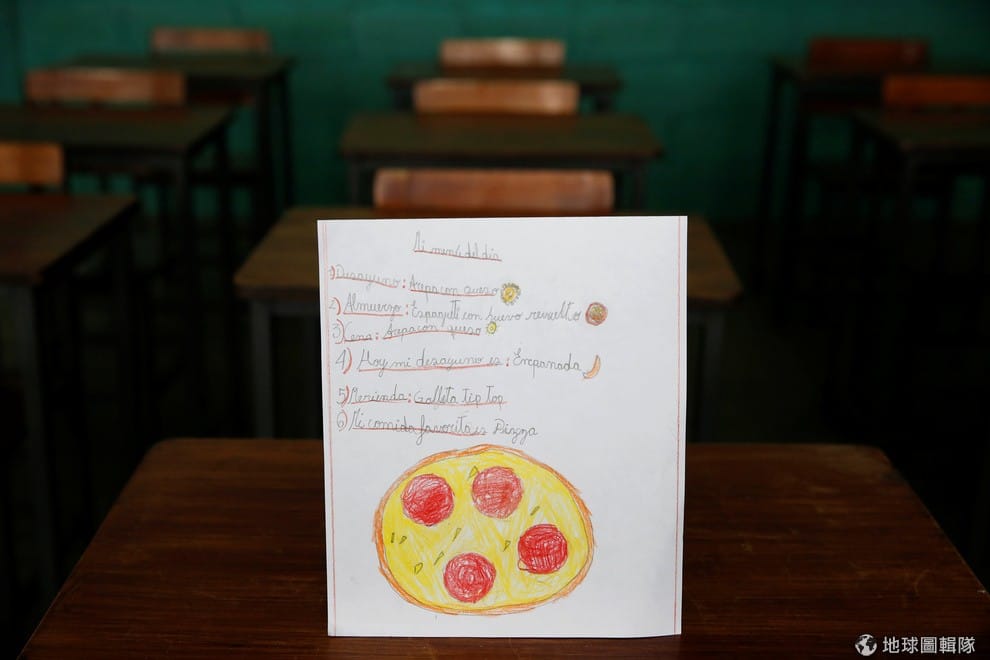 Mi menú del día
1) Desayuno: Arepa con queso
2) Almuerzo: Espaguetti con huevo revuelto
3) Cena: Arepa con queso
4) Hoy mi desayuno es: Empanada
5) Merienda: Galleta tip top
6) Mi comida favorita es Pizza
地球圖輯隊